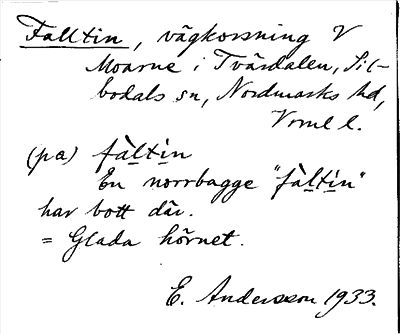 Falltin, vägkorsning V
Moarne i Tvärdalen, Sil-
bodals sn, Nordmarks hd,
Vrml l.
(pa) fàltìn
En norrbagge "fàltìn"
har bott där.
= Glada hörnet.
E. Andersson 1933.